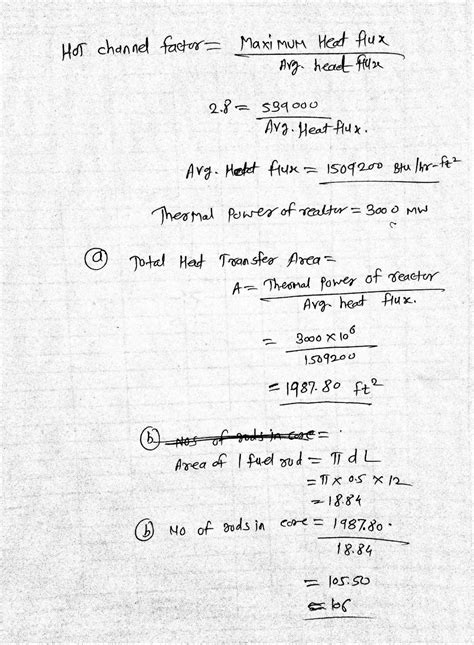 Hot channel factor = Maximum Heat flux / Avg. head flux
2.8 = 539000 / Avg. Heat flux.
Avg. Heat flux = 1509200 Btu/hr-ft²
Thermal Power of realtor = 3000 MW
(a) Total Heat Transfer Area =
A = Thermal Power of reactor / Avg heat flux.
= 3000 × 10⁶ / 1509200
= 1987.80 ft²
(b) Nos of rods in core =
Area of 1 fuel rod = π d L
= π × 0.5 × 12
= 18.84
(b) No of rods in core = 1987.80 / 18.84
= 105.50
= 106